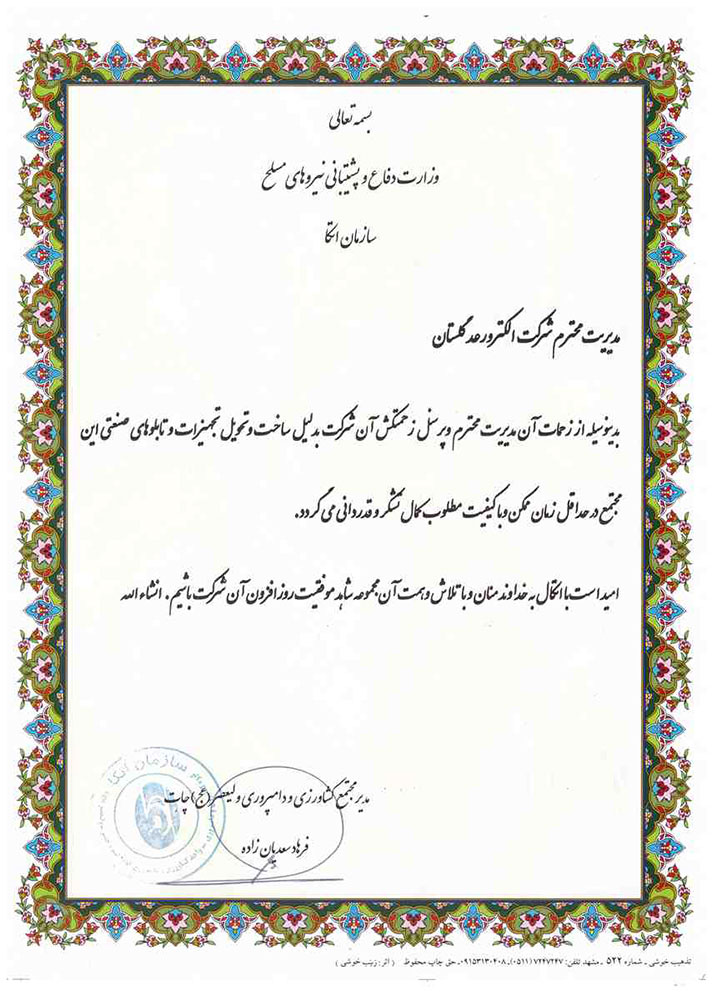 بسمه تعالی
وزارت دفاع و پشتیبانی نیروهای مسلح
سازمان اتکا
مدیریت محترم شرکت الکترو رعد گلستان
بدینوسیله از زحمات آن مدیریت محترم و پرسنل زحمتکش آن شرکت بدلیل ساخت و تحویل تجهیزات و تابلوهای صنعتی این
مجتمع در حداقل زمان ممکن و با کیفیت مطلوب کمال تشکر و قدردانی می گردد.
امید است با اتکال به خداوند منان و با تلاش و همت آن مجموعه شاهد موفقیت روز افزون آن شرکت باشیم. انشاء الله
سازمان اتکا
مدیر مجتمع کشاورزی و دامپروری ولیعصر (عج) چات
فرهاد سعدیان زاده
تذهیب خوشی ـ شماره ۵۲۲ ـ مشهد تلفن: ۷۲۴۷۲۴۷ (۰۵۱۱) ـ ۰۹۱۵۳۱۳۰۴۰۸ ـ حق چاپ محفوظ (اثر: زینب خوشی)